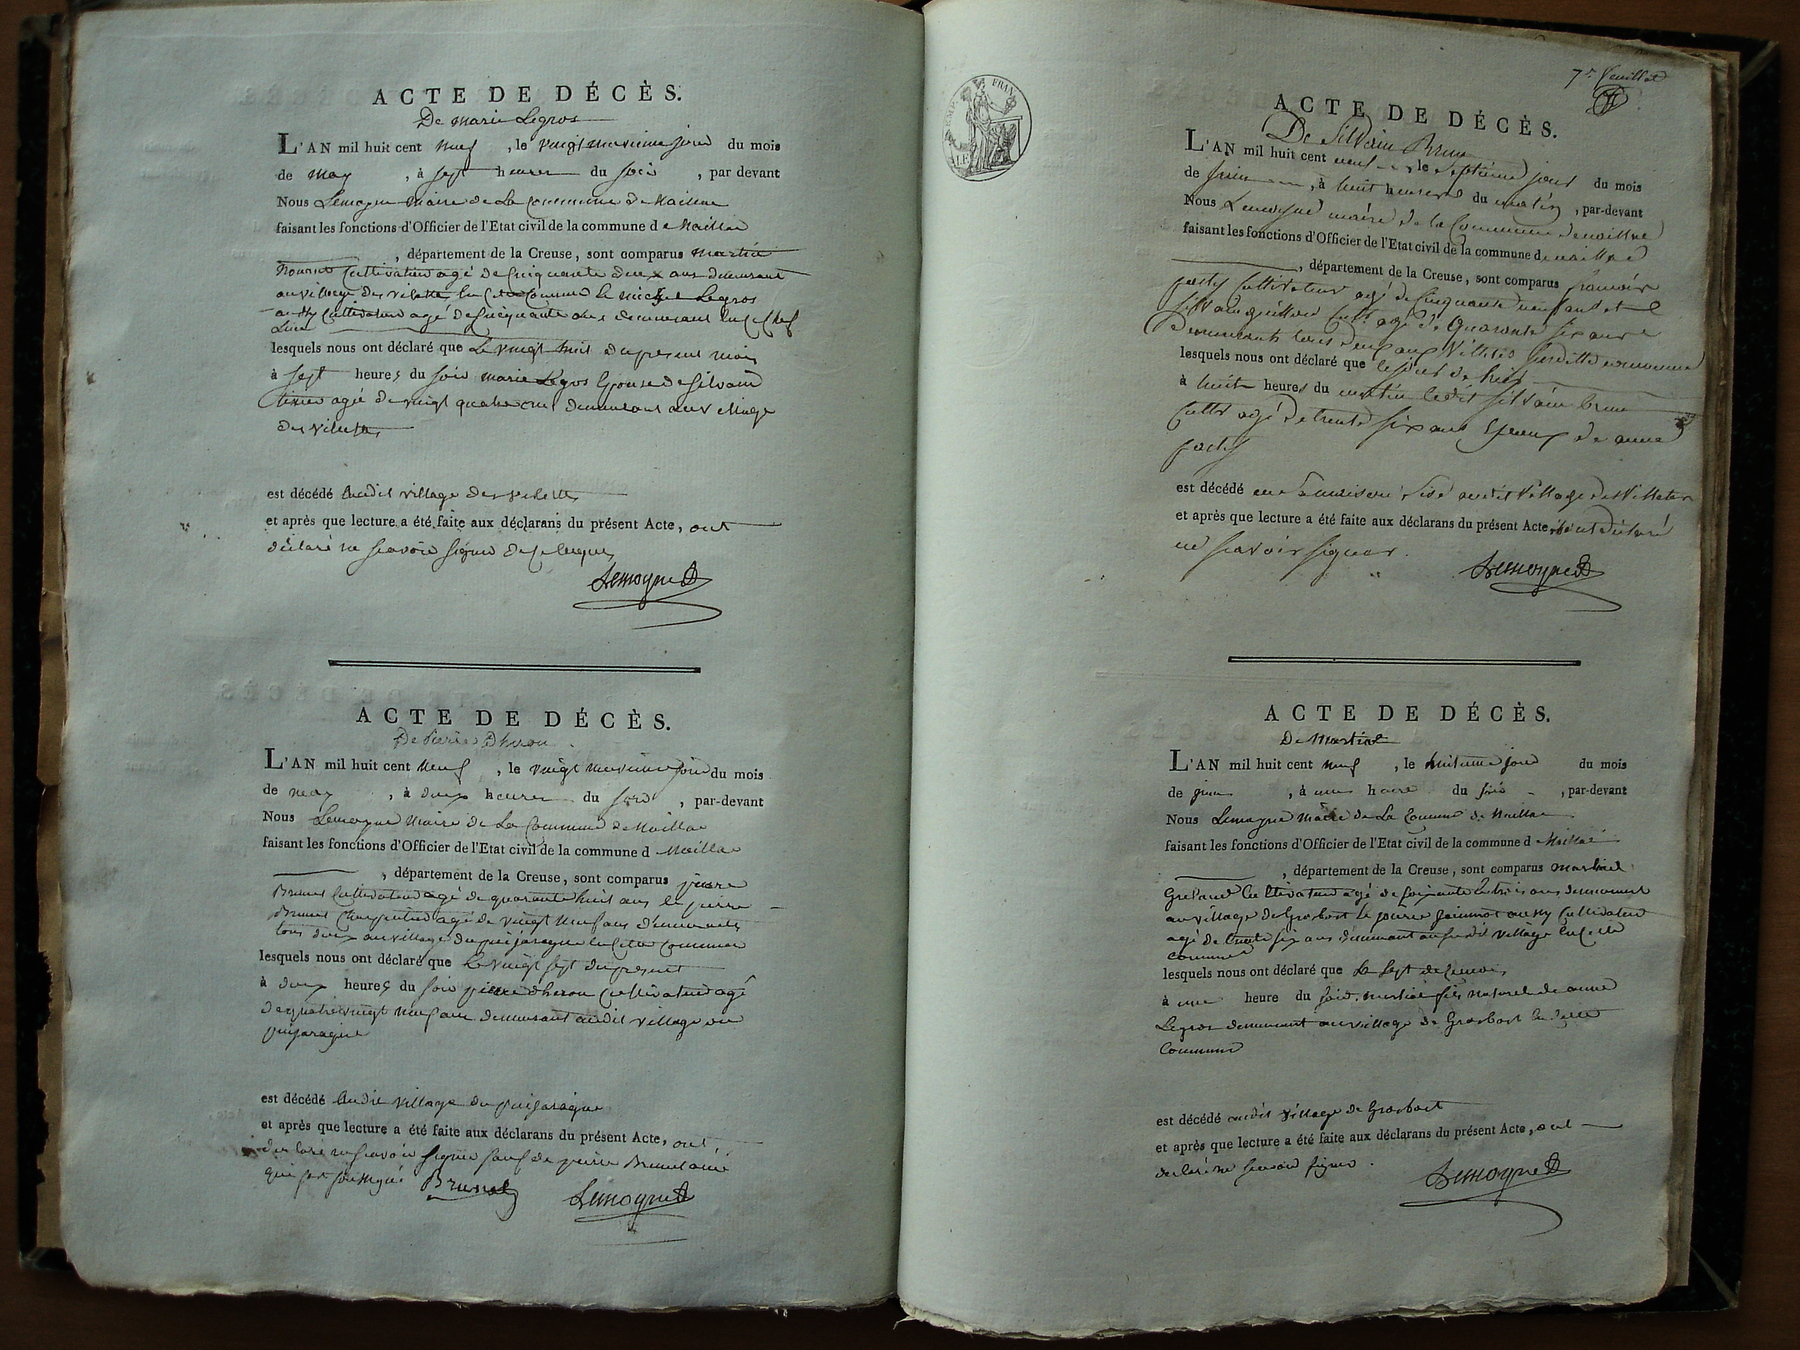 ACTE DE DÉCÈS.
De marie Legros
L'AN mil huit cent neuf , le vingt neuvieme jour du mois
de may , à sept heures du soir , par devant
Nous Lemoyne maire de La Commune de Naillac
faisant les fonctions d'Officier de l'Etat civil de la commune d e Naillac
, département de la Creuse, sont comparus martin
cultivateur agé de Cinquante deux ans demeurant
au village des vilettes en Cette Commune Le Legros
aussy Cultivateur agé de Cinquante ans demeurant
Lieu
lesquels nous ont déclaré que Le vingt huit du present mois
à sept heures du soir marie Legros Epouse de silvain
agé de vingt quatre ans demeurant au village
des vilettes
est décédé audit village des vilettes
et après que lecture a été faite aux déclarans du présent Acte, ont
déclaré ne scavoir signer de ce enquis
Lemoyne
ACTE DE DÉCÈS.
De Pierre Dheron
L'AN mil huit cent neuf , le vingt neuvieme jour du mois
de may , à deux heures du soir , par-devant
Nous Lemoyne Maire de La Commune de Naillac
faisant les fonctions d'Officier de l'Etat civil de la commune d Naillac
, département de la Creuse, sont comparus pierre
Brunet Cultivateur agé de quarante huit ans et pierre
Brunet Charpentier agé de vingt neuf ans demeurants
tous deux au village du puijaragne en Cette Commune
lesquels nous ont déclaré que Le vingt sept du present
à deux heures du soir pierre dheron Cultivateur agé
de quatre vingt neuf ans demeurant audit village du
puijaragne
est décédé audit village du puijaragne
et après que lecture a été faite aux déclarans du présent Acte, ont
declaré ne scavoir signer sauf de pierre Brunet ainé
qui
Brunet Lemoyne
7e. feuillet
ACTE DE DÉCÈS.
De Silvain Brun
L'AN mil huit cent neuf , le septième jour du mois
de juin , à huit heures du matin , par-devant
Nous Lemoyne maire de la Commune de naillac
faisant les fonctions d'Officier de l'Etat civil de la commune de naillac
, département de la Creuse, sont comparus françois
Cultivateur agé de Cinquante neuf ans et
silvain cultr. agé de Quarante six ans
Demeurants tous deux aux Villetes susditte commune
lesquels nous ont déclaré que le jour de hier
à huit heures du matin ledit silvain brun
cultr. agé de trente six ans Epoux de anne
est décédé en sa maison sise audit village des Villetes
et après que lecture a été faite aux déclarans du présent Acte, ont déclaré
ne scavoir signer.
Lemoyne
ACTE DE DÉCÈS.
De Martial
L'AN mil huit cent neuf , le huitieme jour du mois
de juin , à une heure du soir , par-devant
Nous Lemoyne Maire de La Commune de Naillac
faisant les fonctions d'Officier de l'Etat civil de la commune d Naillac
, département de la Creuse, sont comparus martial
Cultivateur agé de soixante et trois ans demeurant
au village de Grosbost et pierre aussy Cultivateur
agé de trente six ans demeurant au susdit village en Cette
commune
lesquels nous ont déclaré que Le sept de ce mois
à une heure du soir martial fils naturel de anne
Legros demeurant au village de Grosbost en Cette
Commune
est décédé audit village de Grosbost
et après que lecture a été faite aux déclarans du présent Acte, ont
declaré ne scavoir signer.
Lemoyne